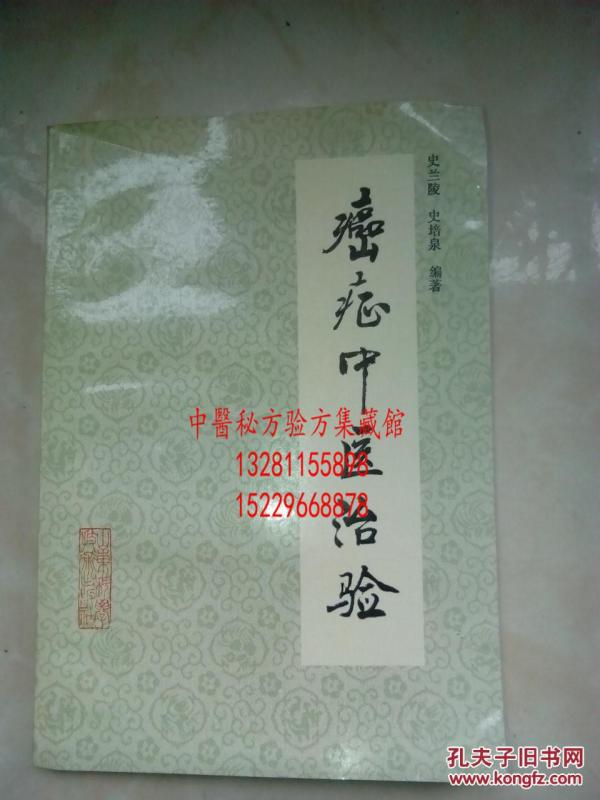 史兰陵 史培泉 编著
癌症中医治验
中醫秘方验方集藏館
13281155898
15229668878
孔夫子旧书网
www.kongfz.com